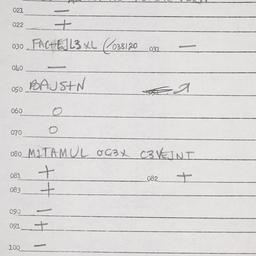 021 —
022 +
030 FACHEJL3XL (/038120 031 —
040 —
050 BAJStN
060 O
070 O
080 M1TAMUL OG3X C3VEJNT
081 + 082 +
083 +
090 —
091 +
100 —